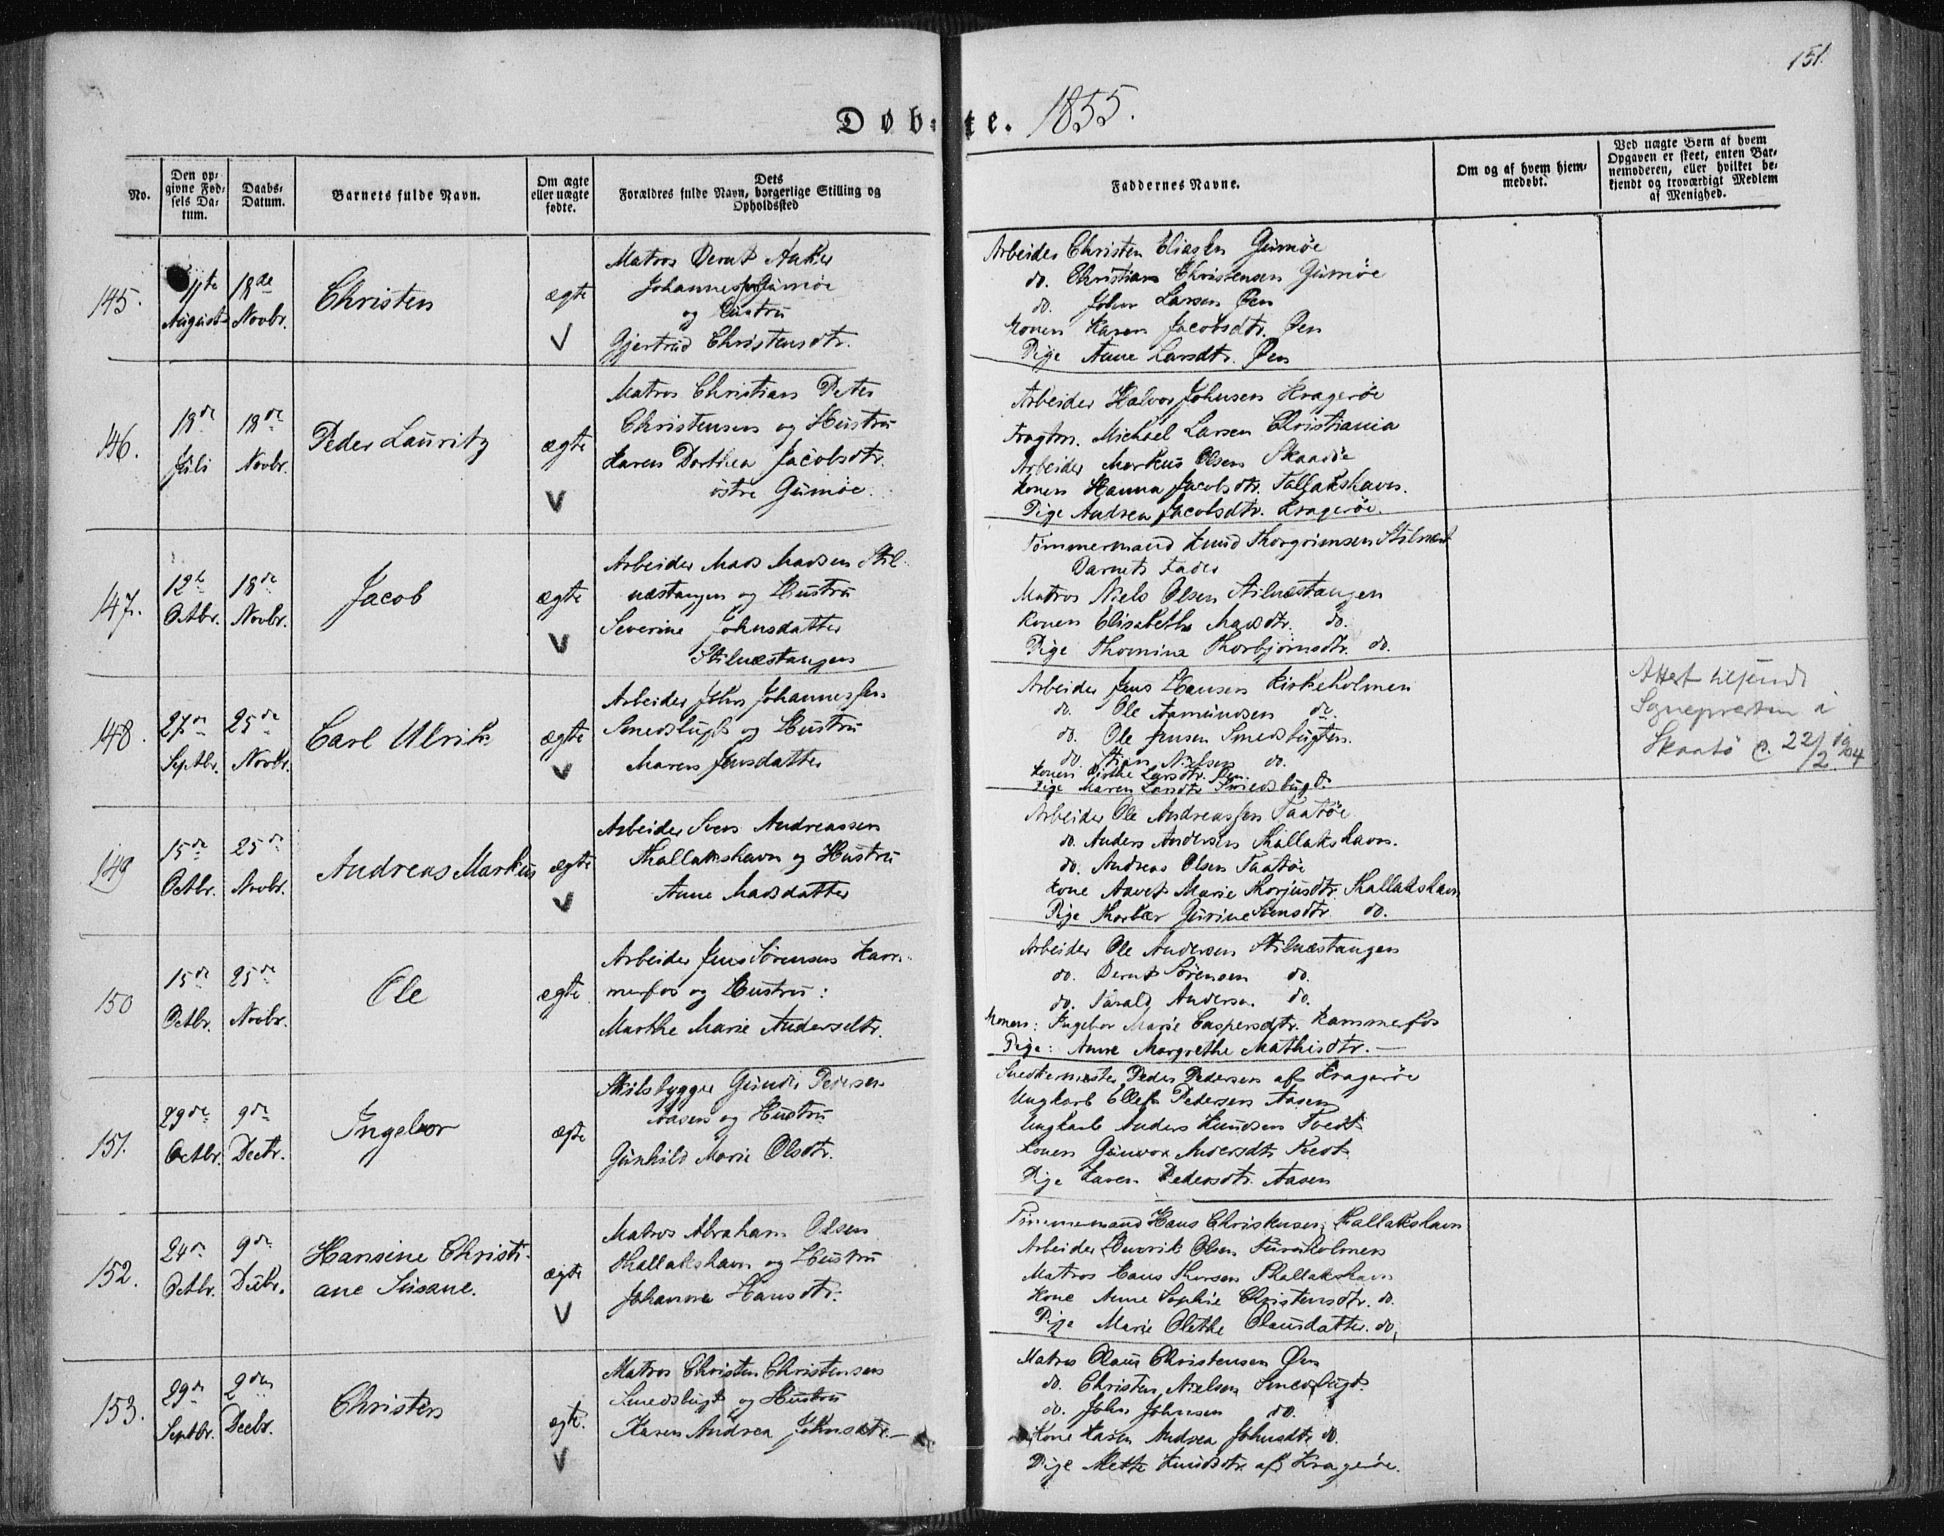 151.
Døbte. 1855.
No.
Den opgivne Fødsels Datum.
Daabs-Datum.
Barnets fulde Navn.
Om ægte eller uægte fødte.
Dets Forældres fulde Navn, borgerlige Stilling og Opholdssted
Faddernes Navne.
Om og af hvem hjemmedøbt.
Ved uægte Børn af hvem Opgaven er skeet, enten Barnemoderen, eller hvilket bekjendt og troværdigt Medlem af Menighed.
145.
11te August
18de Novbr.
Christen
ægte
V
Matros Bernt Anker
Johannessen Gumøe
og Hustru
Gjertrud Christensdtr.
Arbeider Christen Eliassen Gumøe
do. Christian Christensen Gumøe
do. John Larsen Øen
Konen Karen Jacobsdtr. Øen
Pige Anne Larsdtr. Øen
146.
18de Juli
18de Novbr.
Peder Lauritz
ægte
V
Matros Christian Peter
Christensen og Hustru
Karen Dorthea Jacobsdtr.
østre Gumøe.
Arbeider Halvor Johnsen Kragerøe
Fragtm. Michael Larsen Christiania
Arbeider Markus Olsen Skaadøe
Konen Hanna Jacobsdtr. Tallakshavn.
Pige Andrea Jacobsdtr. Kragerøe.
147.
12te Octbr.
18de Novbr.
Jacob
ægte
V
Arbeider Mads Madsen Stil-
næstangen og Hustru
Severine Johnsdatter
Stilnæstangen
Tømmermand Knud Thorgrimsen Stilnæst
Barnets Fader
Matros Niels Olsen Stilnæstangen
Konen Elisabeth Madsdtr. do.
Pige Thomine Thorbjørnsdtr. do.
148.
27de Septbr.
25de Novbr.
Carl Ulrik
ægte
V
Arbeider John Johannessen
Smedsbugt og Hustru
Maren Jensdatter
Arbeider Jens Hansen Kirkeholmen
do. Ole Aamundsen do.
do. Ole Jensen Smedsbugten.
do. Stian Nielsen do.
Konen Birthe Larsdtr. Øen.
Pige Maren Larsdtr Smedsbugt.
Attest tilsendt
Sognepresten i
Skaatø d. 22/2 1904
149
15de Octbr.
25de Novbr.
Andreas Markus
ægte
V
Arbeider Sven Andreassen
Thallakshavn og Hustru
Anne Madsdatter
Arbeider Ole Andreassen Taatøe
do. Anders Andersen Thallakshavn.
do. Andreas Olsen Taatøe
Kone Aavet Marie Thorjusdtr. Thallakshavn
Pige Thorbær Gurine Svensdtr. do.
150
15de Octbr.
25de Novbr.
Ole
ægte
Arbeider Jens Sørensen Kam-
merfos og Hustru:
Marthe Marie Andersdtr.
Arbeider Ole Andersen Stilnæstangen
do. Bernt Sørensen do.
do. Tarald Andersen do.
Konen: Ingebor Marie Caspersdtr. Kammerfos
Pige: Anne Margrethe Mathisdtr. —
151.
29de Octbr.
9de Decbr.
Ingebor
ægte
Skibsbygger Gunder Pedersen
Aasen og Hustru
Gunhild Marie Olsdtr.
Snedkermester Peder Pedersen af Kragerøe
Ungkarl Ellef Pedersen Aasen
Ungkarl Anders Knudsen Tvedt
Konen Gunvor Andersdtr Tvedt
Pige Karen Pedersdtr. Aasen
152.
24de Octbr.
9de Decbr.
Hansine Christi-
ane Susane.
ægte
V
Matros Abraham Olsen
Thallakshavn og Hustru
Johanne Hansdtr.
Tømmermand Hans Christensen Thallakshavn
Arbeider Henrik Olsen Furuholmen
Matros Hans Thorsen Thallakshavn
Kone Anne Sophie Christensdtr. do.
Pige Marie Olethe Olausdatter. do.
153.
29de Septbr.
2den Decbr.
Christen
ægte.
V
Matros Christen Christensen
Smedsbugt og Hustru
Karen Andrea Johnsdtr. —
Matros Olaus Christensen Øen
do. Christen Nielsen Smedsbugt.
do. John Johnsen do.
Kone Karen Andrea Johnsdtr do.
Pige Mette Knudsdtr. af Kragerøe.